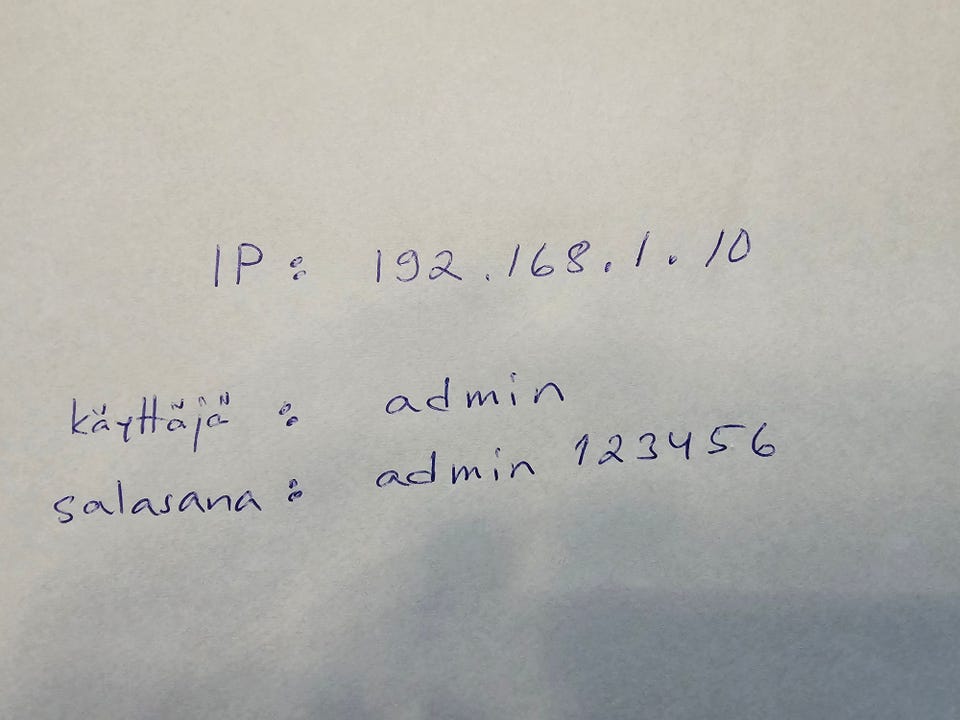 IP: 192.168.1.10
käyttäjä: admin
salasana: admin 123456